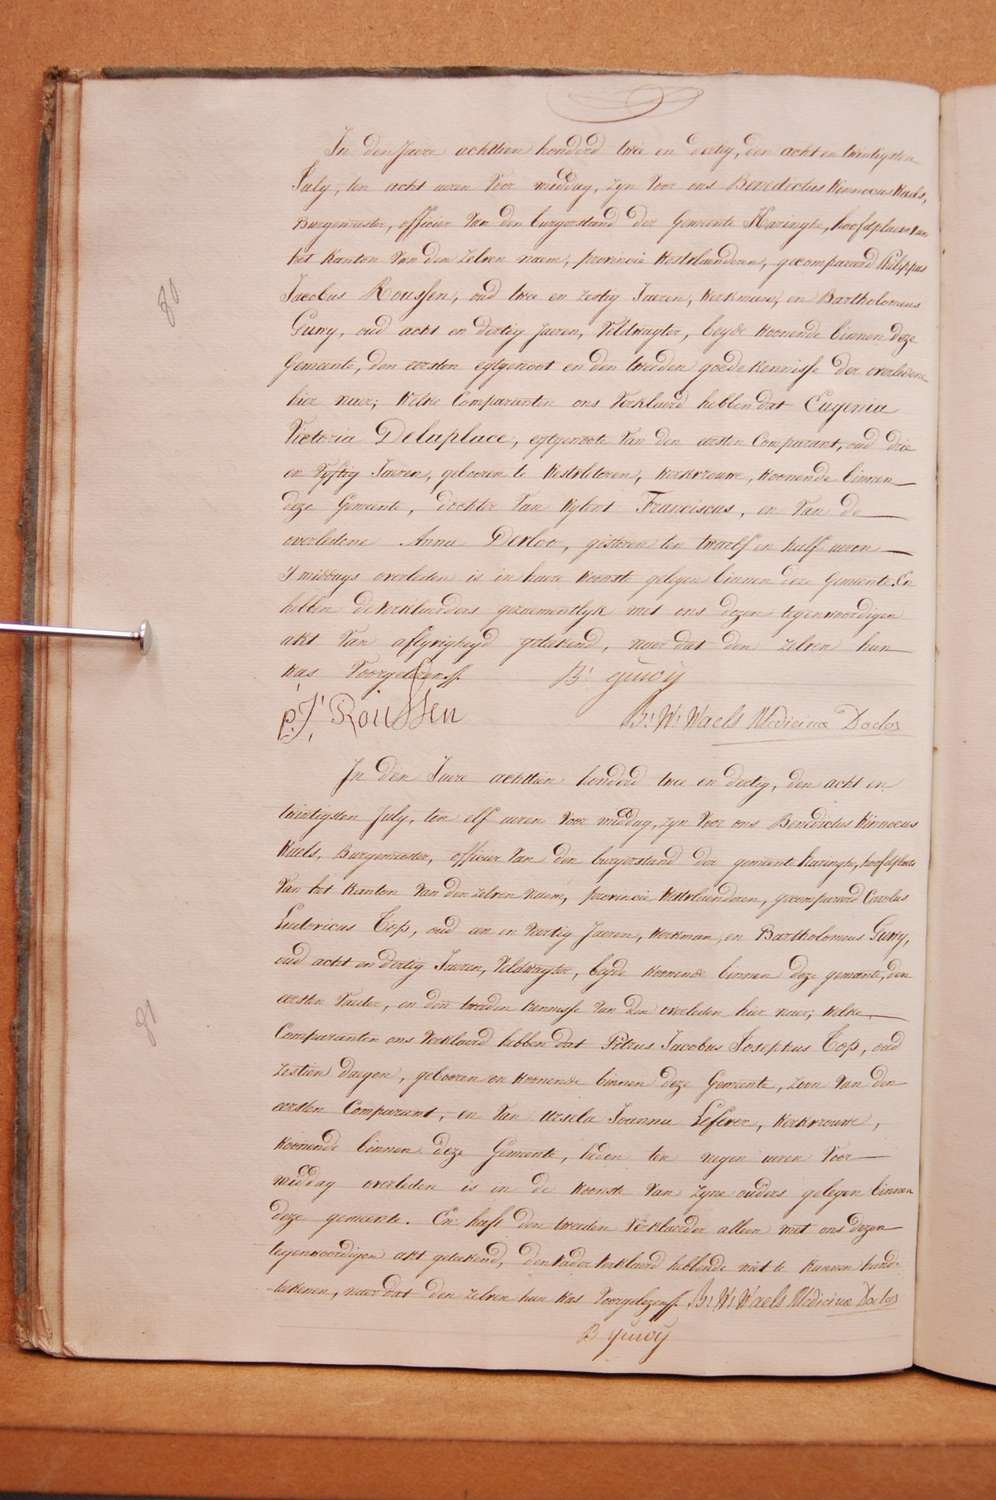 In den Jaere achttien honderd twee en dertig, den acht en twintigsten
July, ten acht uren voor middag, zyn voor ons Benedictus Winnocus Waels,
Burgemeester, officier van den burgerstand der Gemeente Haringhe, hoofdplaets van
het Kanton van den zelven naem, provincie Westvlaenderen, gecompareerd Philippus
Jacobus Roussen, oud twee en zestig Jaeren, werkman, en Bartholomeus
Guwy, oud acht en dertig Jaeren, Veldwagter, beyde woonende binnen deze
Gemeente, den eersten egtgenoot en den tweeden goede kennisse der overledene
hier naer; welke Comparanten ons verklaerd hebben dat Eugenia
Victoria Delaplace, egtgenoote van den eersten Comparant, oud drie
en vyftig Jaeren, gebooren te Westvleteren, werkvrouwe, woonende binnen
deze Gemeente, dochter van wylent Franciscus, en van de
overledene Anna Derloo, gisteren ten twaelf en half uren
's middags overleden is in haere woonste gelegen binnen deze Gemeente. En
hebben de verklaerders gezaementlyk met ons dezen tegenwoordigen
akt van aflyvigheyd geteekend, naer dat den zelven hun
was voorgelezen. B. guwy
P. J. RoüSSen B. W. Waels Medicinæ Doctor
80
In den Jaere achttien honderd twee en dertig, den acht en
twintigsten July, ten elf uren voor middag, zyn voor ons Benedictus Winnocus
Waels, Burgemeester, officier van den burgerstand der gemeente haringhe, hoofdplaets
van het Kanton van den zelven naem, provincie Westvlaenderen, gecompareerd Carolus
Ludovicus Top, oud een en veertig Jaeren, werkman, en Bartholomeus Guwy,
oud acht en dertig Jaeren, Veldwagter, beyde woonende binnen deze gemeente, den
eersten vader, en den tweeden kennisse van den overleden hier naer; welke
Comparanten ons verklaerd hebben dat Petrus Jacobus Josephus Top, oud
zestien dagen, gebooren en woonende binnen deze Gemeente, zoon van den
eersten Comparant, en van Ursula Joanna Lefever, werkvrouwe,
woonende binnen deze Gemeente, heden ten negen uren voor
middag overleden is in de woonste van zyne ouders gelegen binnen
deze gemeente. En heeft den tweeden verklaerder alleen met ons dezen
tegenwoordigen akt geteekend, den vader verklaerd hebbende niet te kunnen hand-
-teekenen, naer dat den zelven hun was voorgelezen. B. W. Waels Medicinæ Doctor
B guwy
81